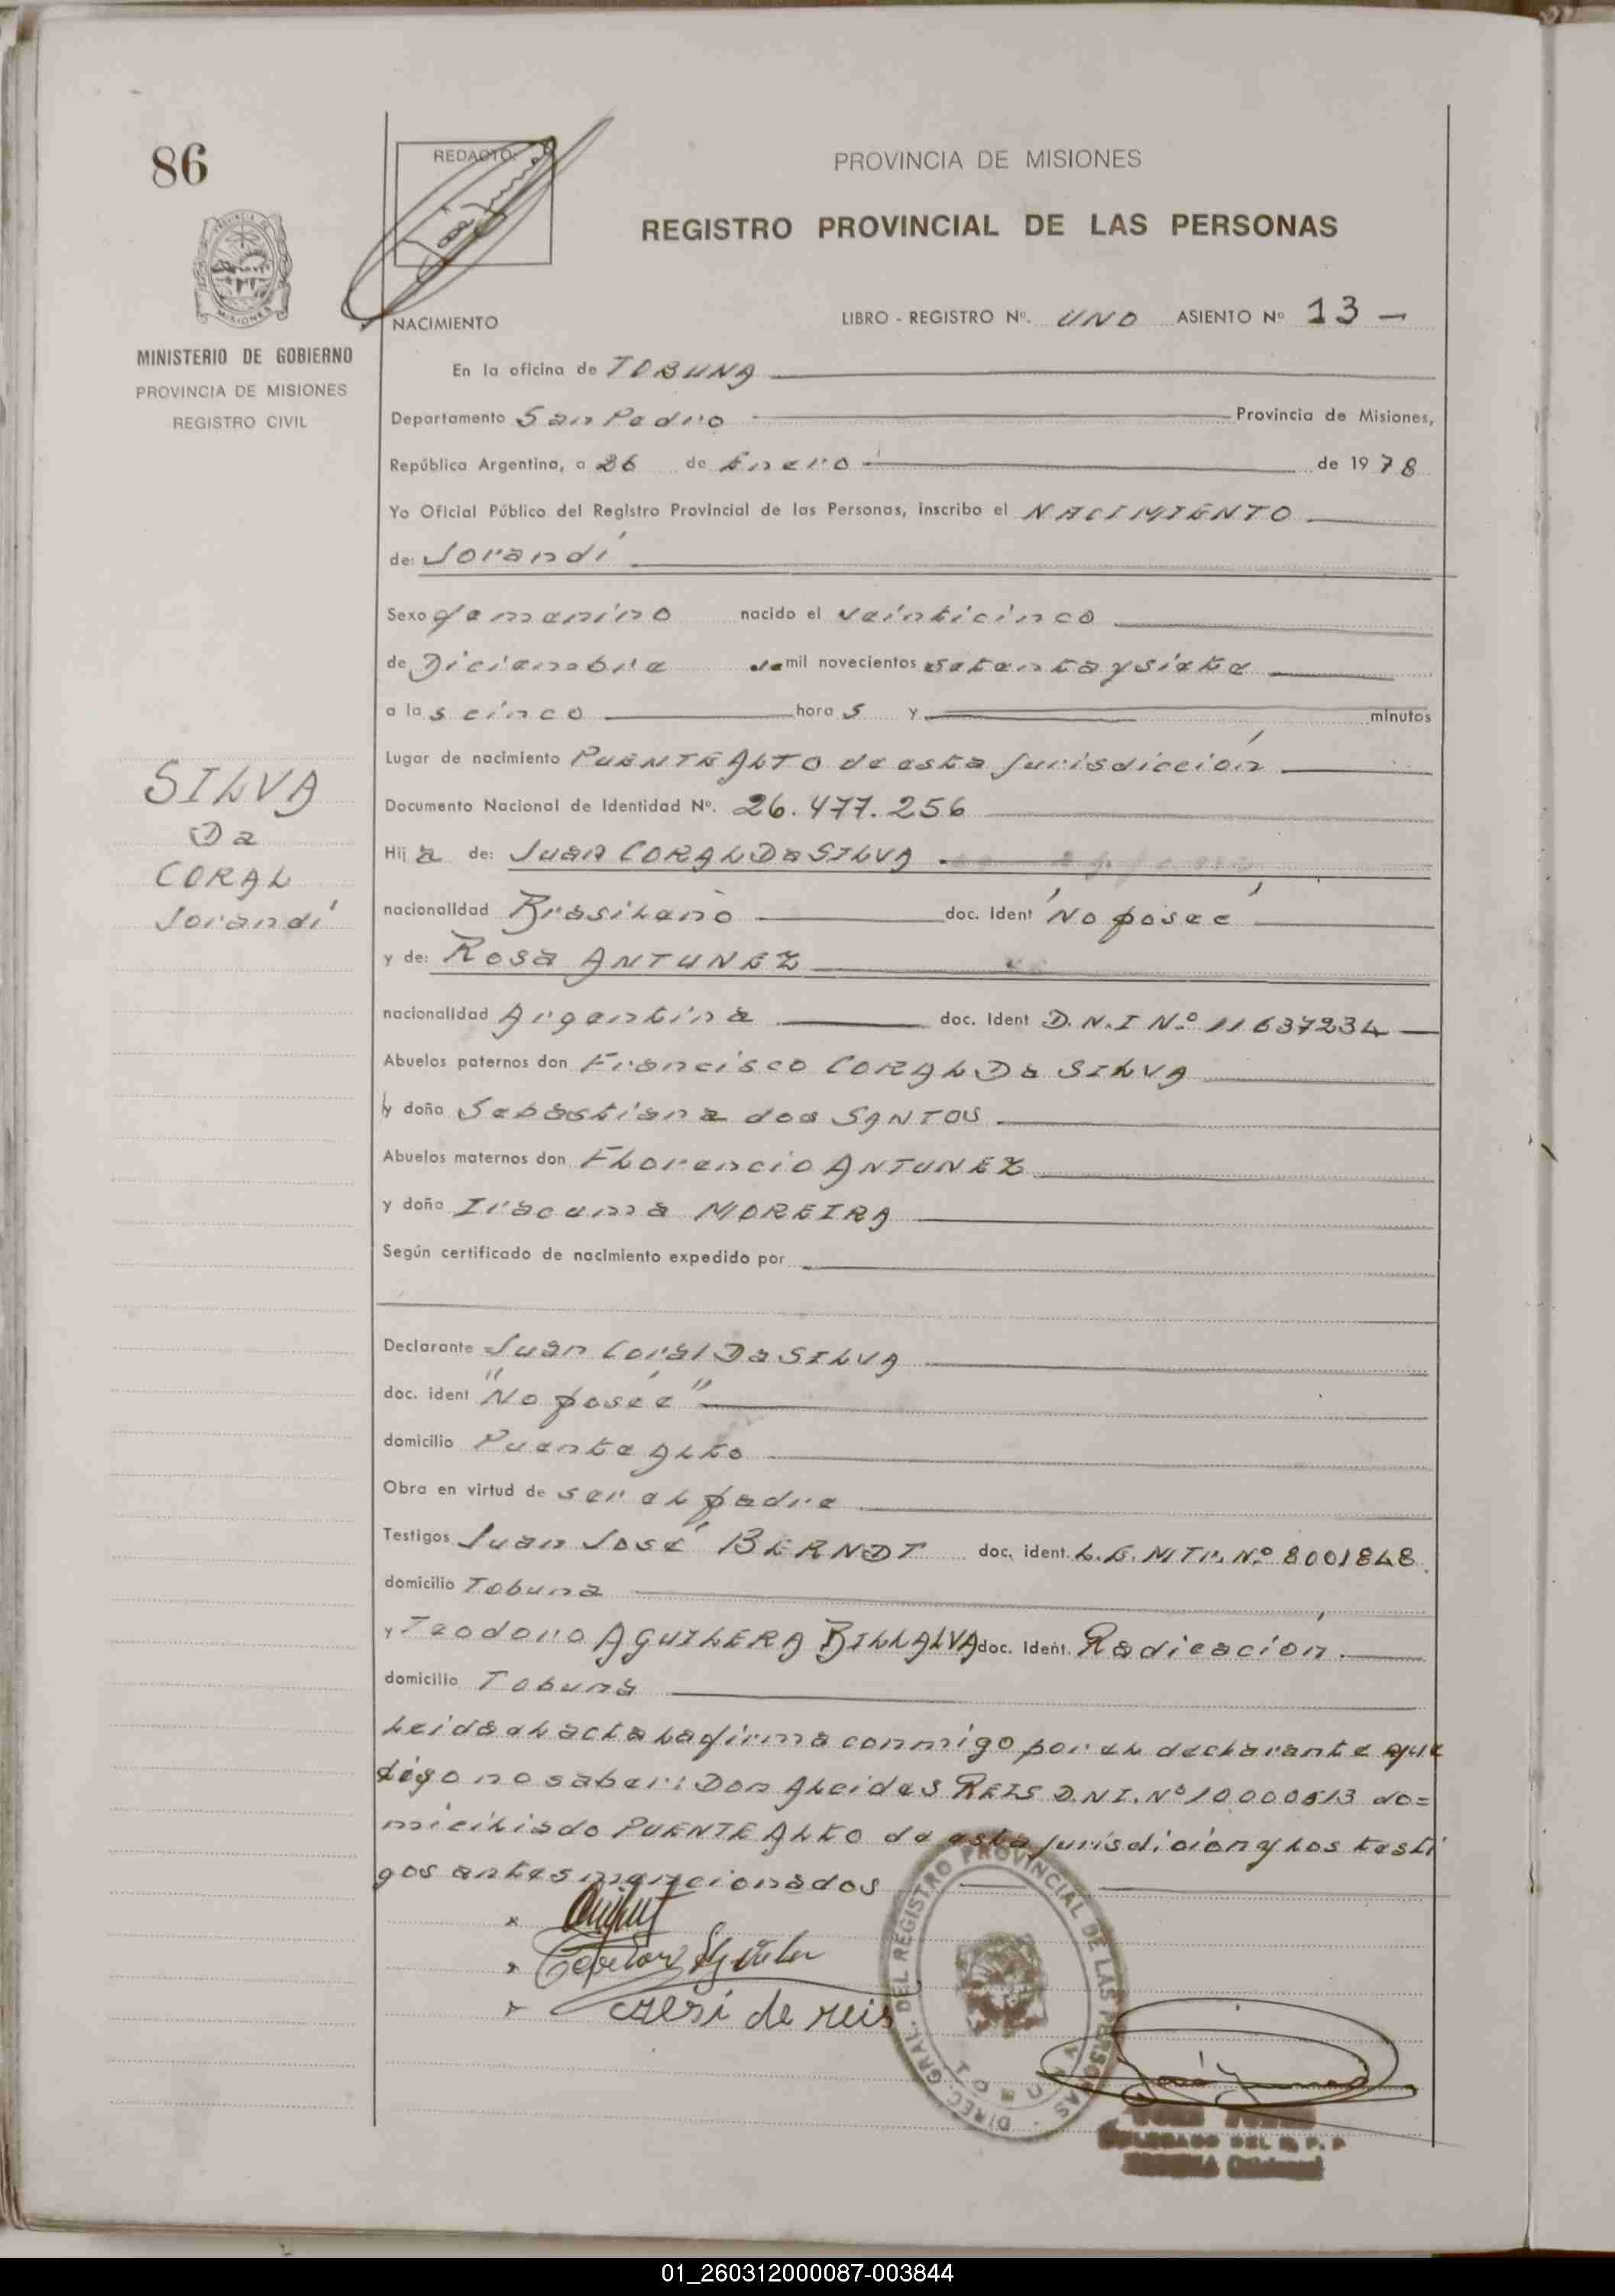 86
REDACTO:
PROVINCIA DE MISIONES
REGISTRO PROVINCIAL DE LAS PERSONAS
MISIONES
MINISTERIO DE GOBIERNO
PROVINCIA DE MISIONES
REGISTRO CIVIL
NACIMIENTO
LIBRO - REGISTRO Nº. UNO ASIENTO Nº 13 -
En la oficina de TOBUNA
Departamento San Pedro Provincia de Misiones,
República Argentina, a 26 de Enero de 1978
Yo Oficial Público del Registro Provincial de las Personas, inscribo el NACIMIENTO
de: Jorandí
Sexo femenino nacido el veinticinco
de Diciembre de mil novecientos setenta y siete
a las cinco horas y minutos
Lugar de nacimiento PUENTE ALTO de esta jurisdicción
Documento Nacional de Identidad Nº. 26.477.256
SILVA
Da
CORAL
Jorandí
Hija de: Juan CORAL Da SILVA
nacionalidad Brasileño doc. Ident No poseé
y de: Rosa ANTUNEZ
nacionalidad Argentina doc. Ident D.N.I Nº 11637234
Abuelos paternos don Francisco CORAL Da SILVA
y doña Sebastiana dos SANTOS
Abuelos maternos don Florencio ANTUNEZ
y doña Iracema MOREIRA
Según certificado de nacimiento expedido por
Declarante Juan Coral Da SILVA
doc. ident "No poseé"
domicilio Puente Alto
Obra en virtud de ser el padre
Testigos Juan José BERNDT doc. ident. L.E. MTR. Nº 8001848
domicilio Tobuna
y Teodoro AGUILERA BILLALVA doc. Ident. Radicación
domicilio Tobuna
Leida el acta la firma conmigo por el declarante que
digo no saber: Don Alcides REIS D.N.I. Nº 10000513 do=
miciliado PUENTE ALTO de esta jurisdicion y los testi
gos antes mencionados
de reis
DIREC. GRAL. DEL REGISTRO PROVINCIAL DE LAS PERSONAS
DELEGADO DEL R. P. P
01_260312000087-003844